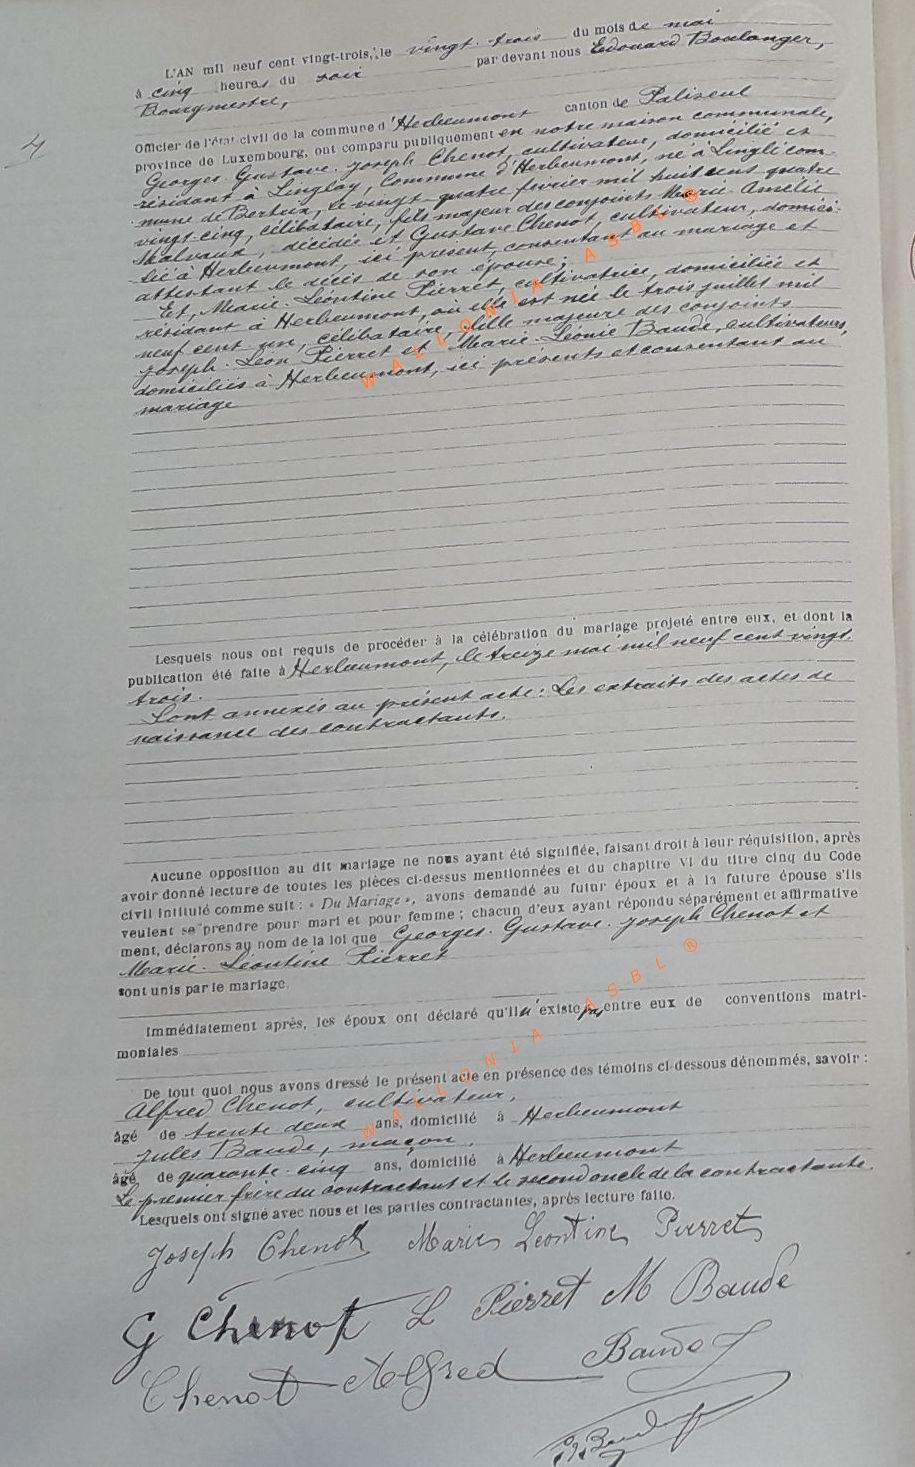 4
L'AN mil neuf cent vingt-trois, le vingt-trois du mois de mai
à cinq heures du soir par devant nous Edouard Boulanger,
Bourgmestre,
Officier de l'état civil de la commune d'Herbeumont canton de Paliseul
province de Luxembourg, ont comparu publiquement en notre maison communale,
Georges-Gustave-Joseph Chenot, cultivateur, domicilié et
résidant à Linglay, Commune d'Herbeumont, né à Linglé com-
mune de Bertrix, le vingt-quatre février mil huit cent quatre
vingt-cinq, célibataire, fils majeur des conjoints Marie-Amélie
décédée et Gustave Chenot, cultivateur, domici-
lié à Herbeumont, ici présent, consentant au mariage et
attestant le décès de son épouse;
Et, Marie-Léontine Pierret, cultivatrice, domiciliée et
résidant à Herbeumont, où elle est née le trois juillet mil
neuf cent un, célibataire, fille majeure des conjoints
Joseph-Léon Pierret et Marie-Léonie Baude, cultivateurs,
domiciliés à Herbeumont, ici présents et consentant au
mariage
Lesquels nous ont requis de procéder à la célébration du mariage projeté entre eux, et dont la
publication été faite à Herbeumont, le treize mai mil neuf cent vingt-
trois.
Sont annexés au présent acte: Les extraits des actes de
naissance des contractants.
Aucune opposition au dit mariage ne nous ayant été signifiée, faisant droit à leur réquisition, après
avoir donné lecture de toutes les pièces ci-dessus mentionnées et du chapitre VI du titre cinq du Code
civil intitulé comme suit : « Du Mariage », avons demandé au futur époux et à la future épouse s'ils
veulent se prendre pour mari et pour femme ; chacun d'eux ayant répondu séparément et affirmative
ment, déclarons au nom de la loi que Georges-Gustave-Joseph Chenot et
Marie-Léontine Pierret
sont unis par le mariage.
Immédiatement après, les époux ont déclaré qu'il n'existe pas entre eux de conventions matri-
moniales
De tout quoi nous avons dressé le présent acte en présence des témoins ci dessous dénommés, savoir :
Alfred Chenot, cultivateur,
âgé de trente deux ans, domicilié à Herbeumont
Jules Baude, maçon,
âgé de quarante-cinq ans, domicilié à Herbeumont
Le premier frère du contractant et le second oncle de la contractante.
Lesquels ont signé avec nous et les parties contractantes, après lecture faite.
Joseph Chenot Marie Léontine Pierret
G Chenot L Pierret M Baude
Chenot Alfred Baude J
WALLONIA ASBL ®
WALLONIA ASBL ®